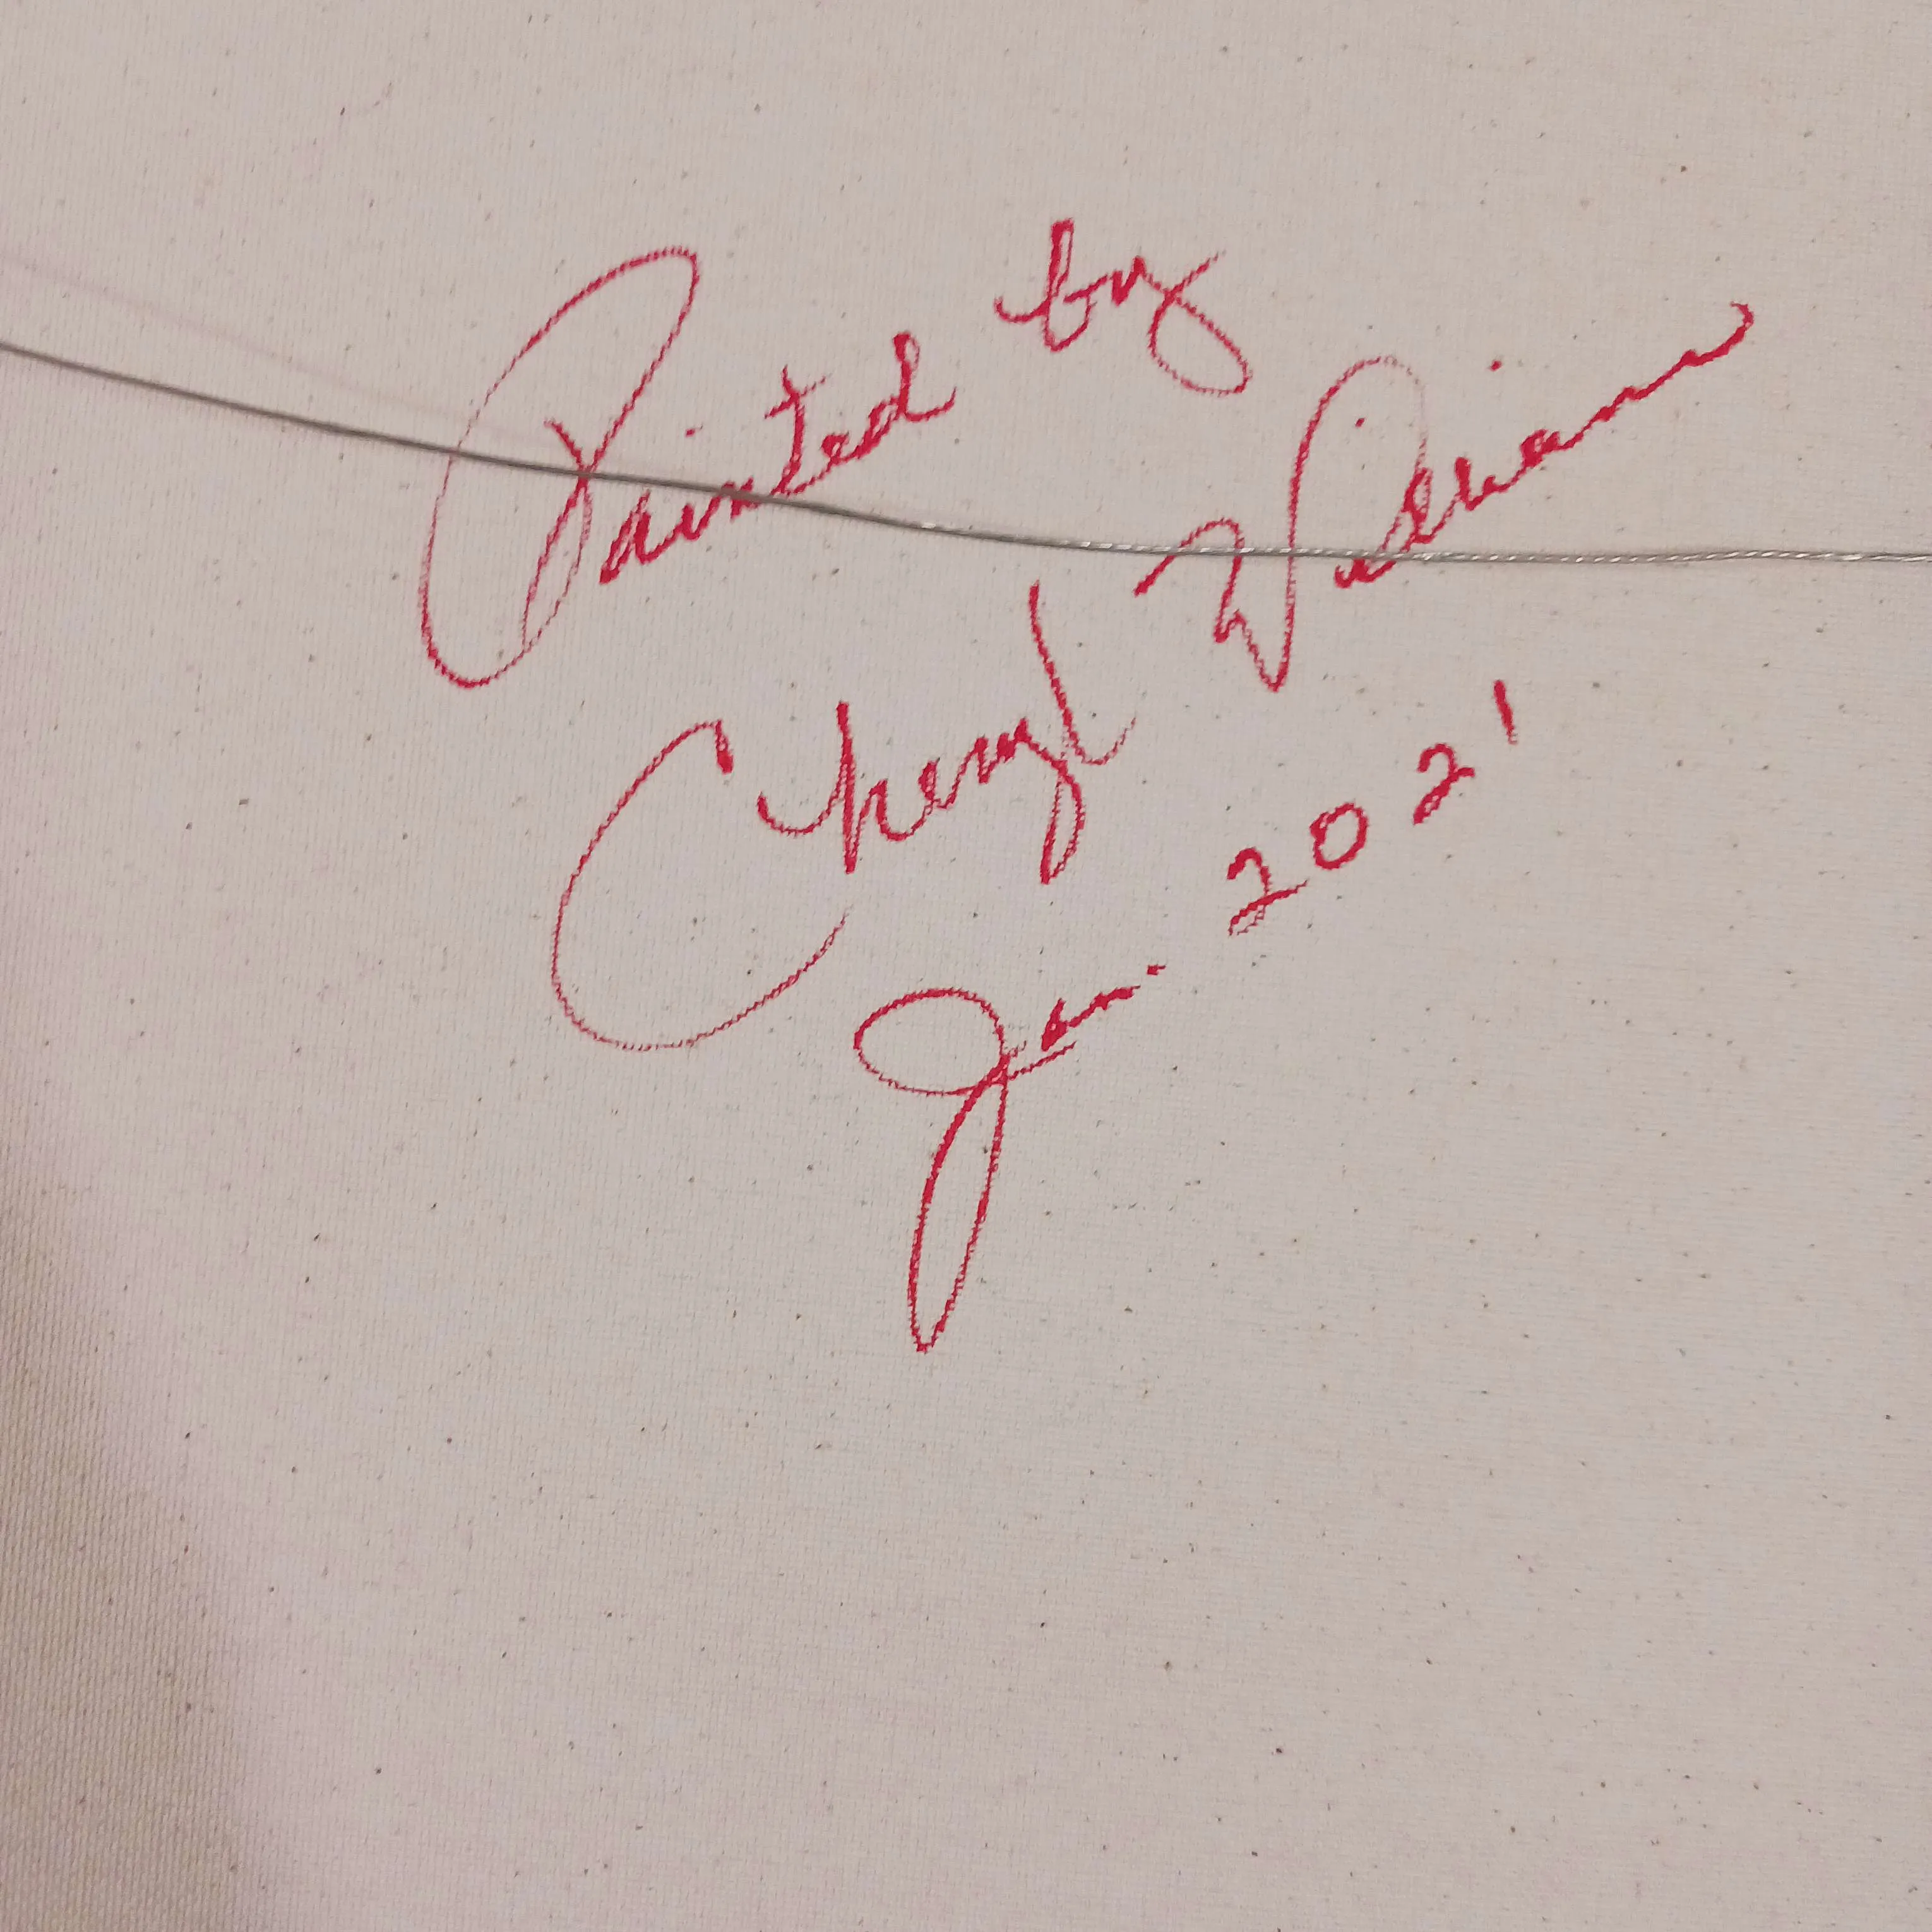 Painted by
Cheryl Williams
Jan. 2021